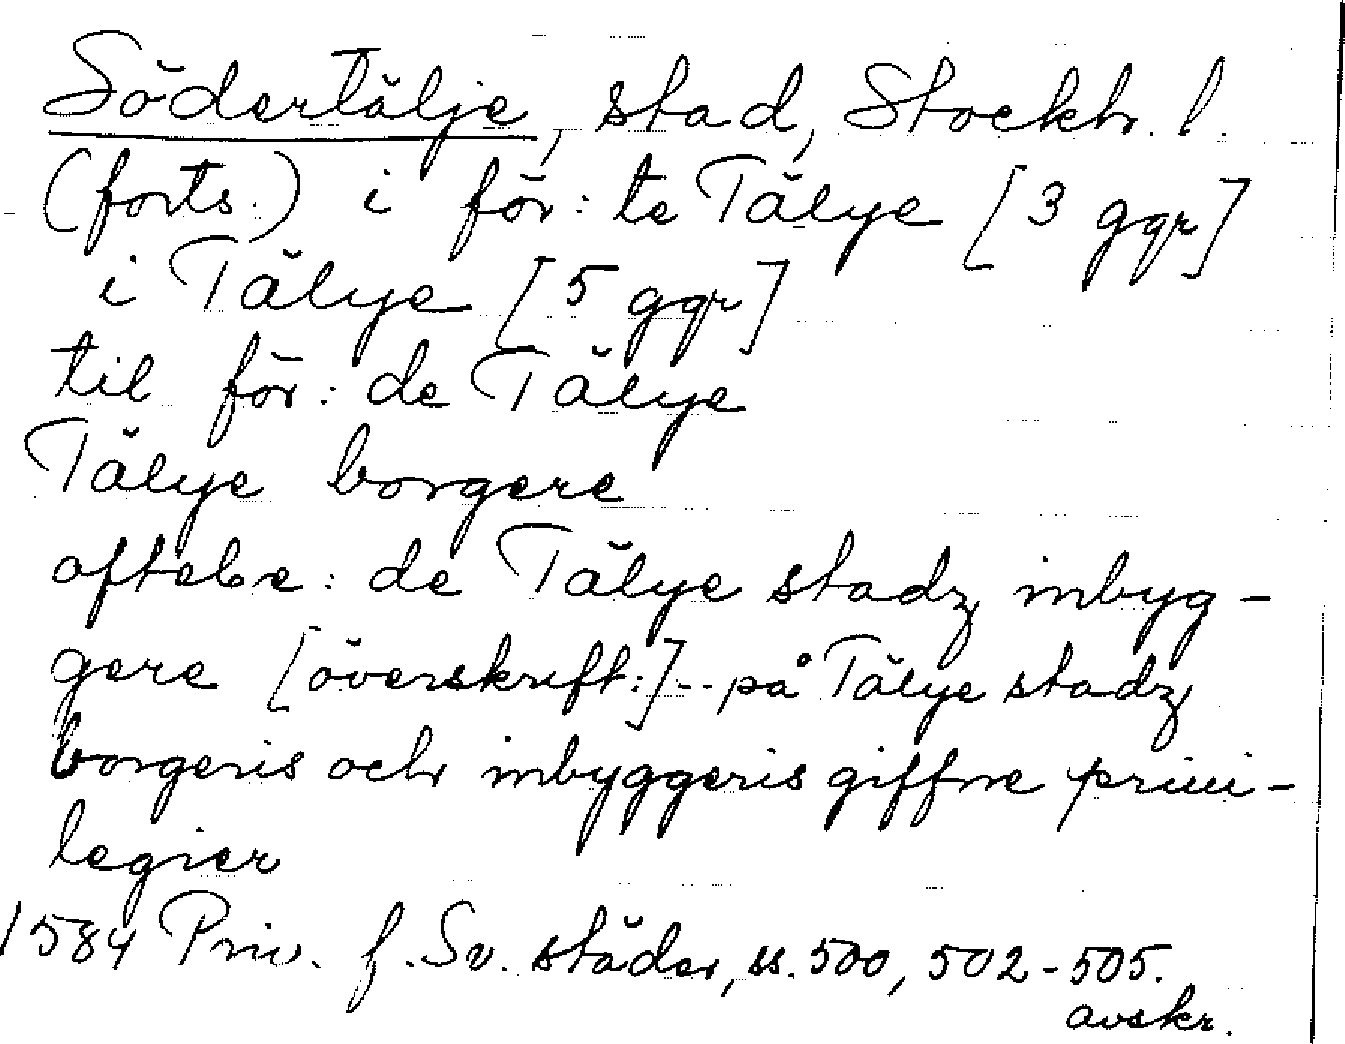 Södertälje, stad, Stockh. l.
(forts.) i för: te Tälye [3 ggr]
i Tälye [5 ggr]
til för: de Tälye
Tälye borgere
oftebe: de Tälye stadz inbyg-
gere [överskrift:] -- på Tälye stadz
borgeris och inbyggeris giffne priui-
legier
1584 Priv. f. Sv. städer, ss. 500, 502-505.
avskr.